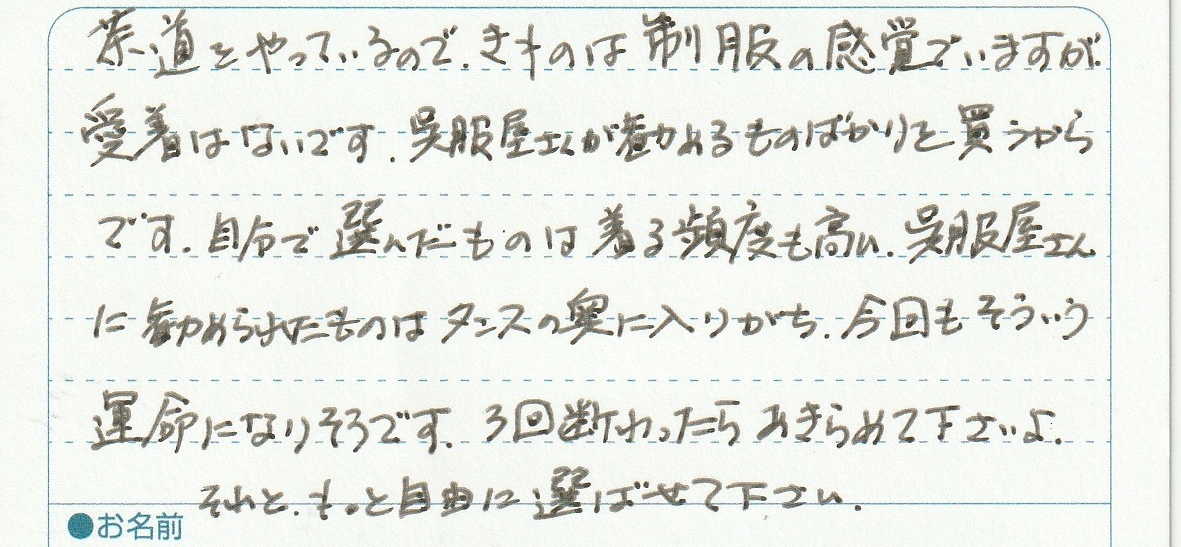 茶道をやっているので、きものは制服の感覚でいますが
愛着はないです。呉服屋さんが勧めるものばかりを買うから
です。自分で選んだものは着る頻度も高い。呉服屋さん
に勧められたものはタンスの奥に入りがち。今回もそういう
運命になりそうです。3回断わったらあきらめて下さいよ。
それと、もっと自由に選ばせて下さい。
●お名前